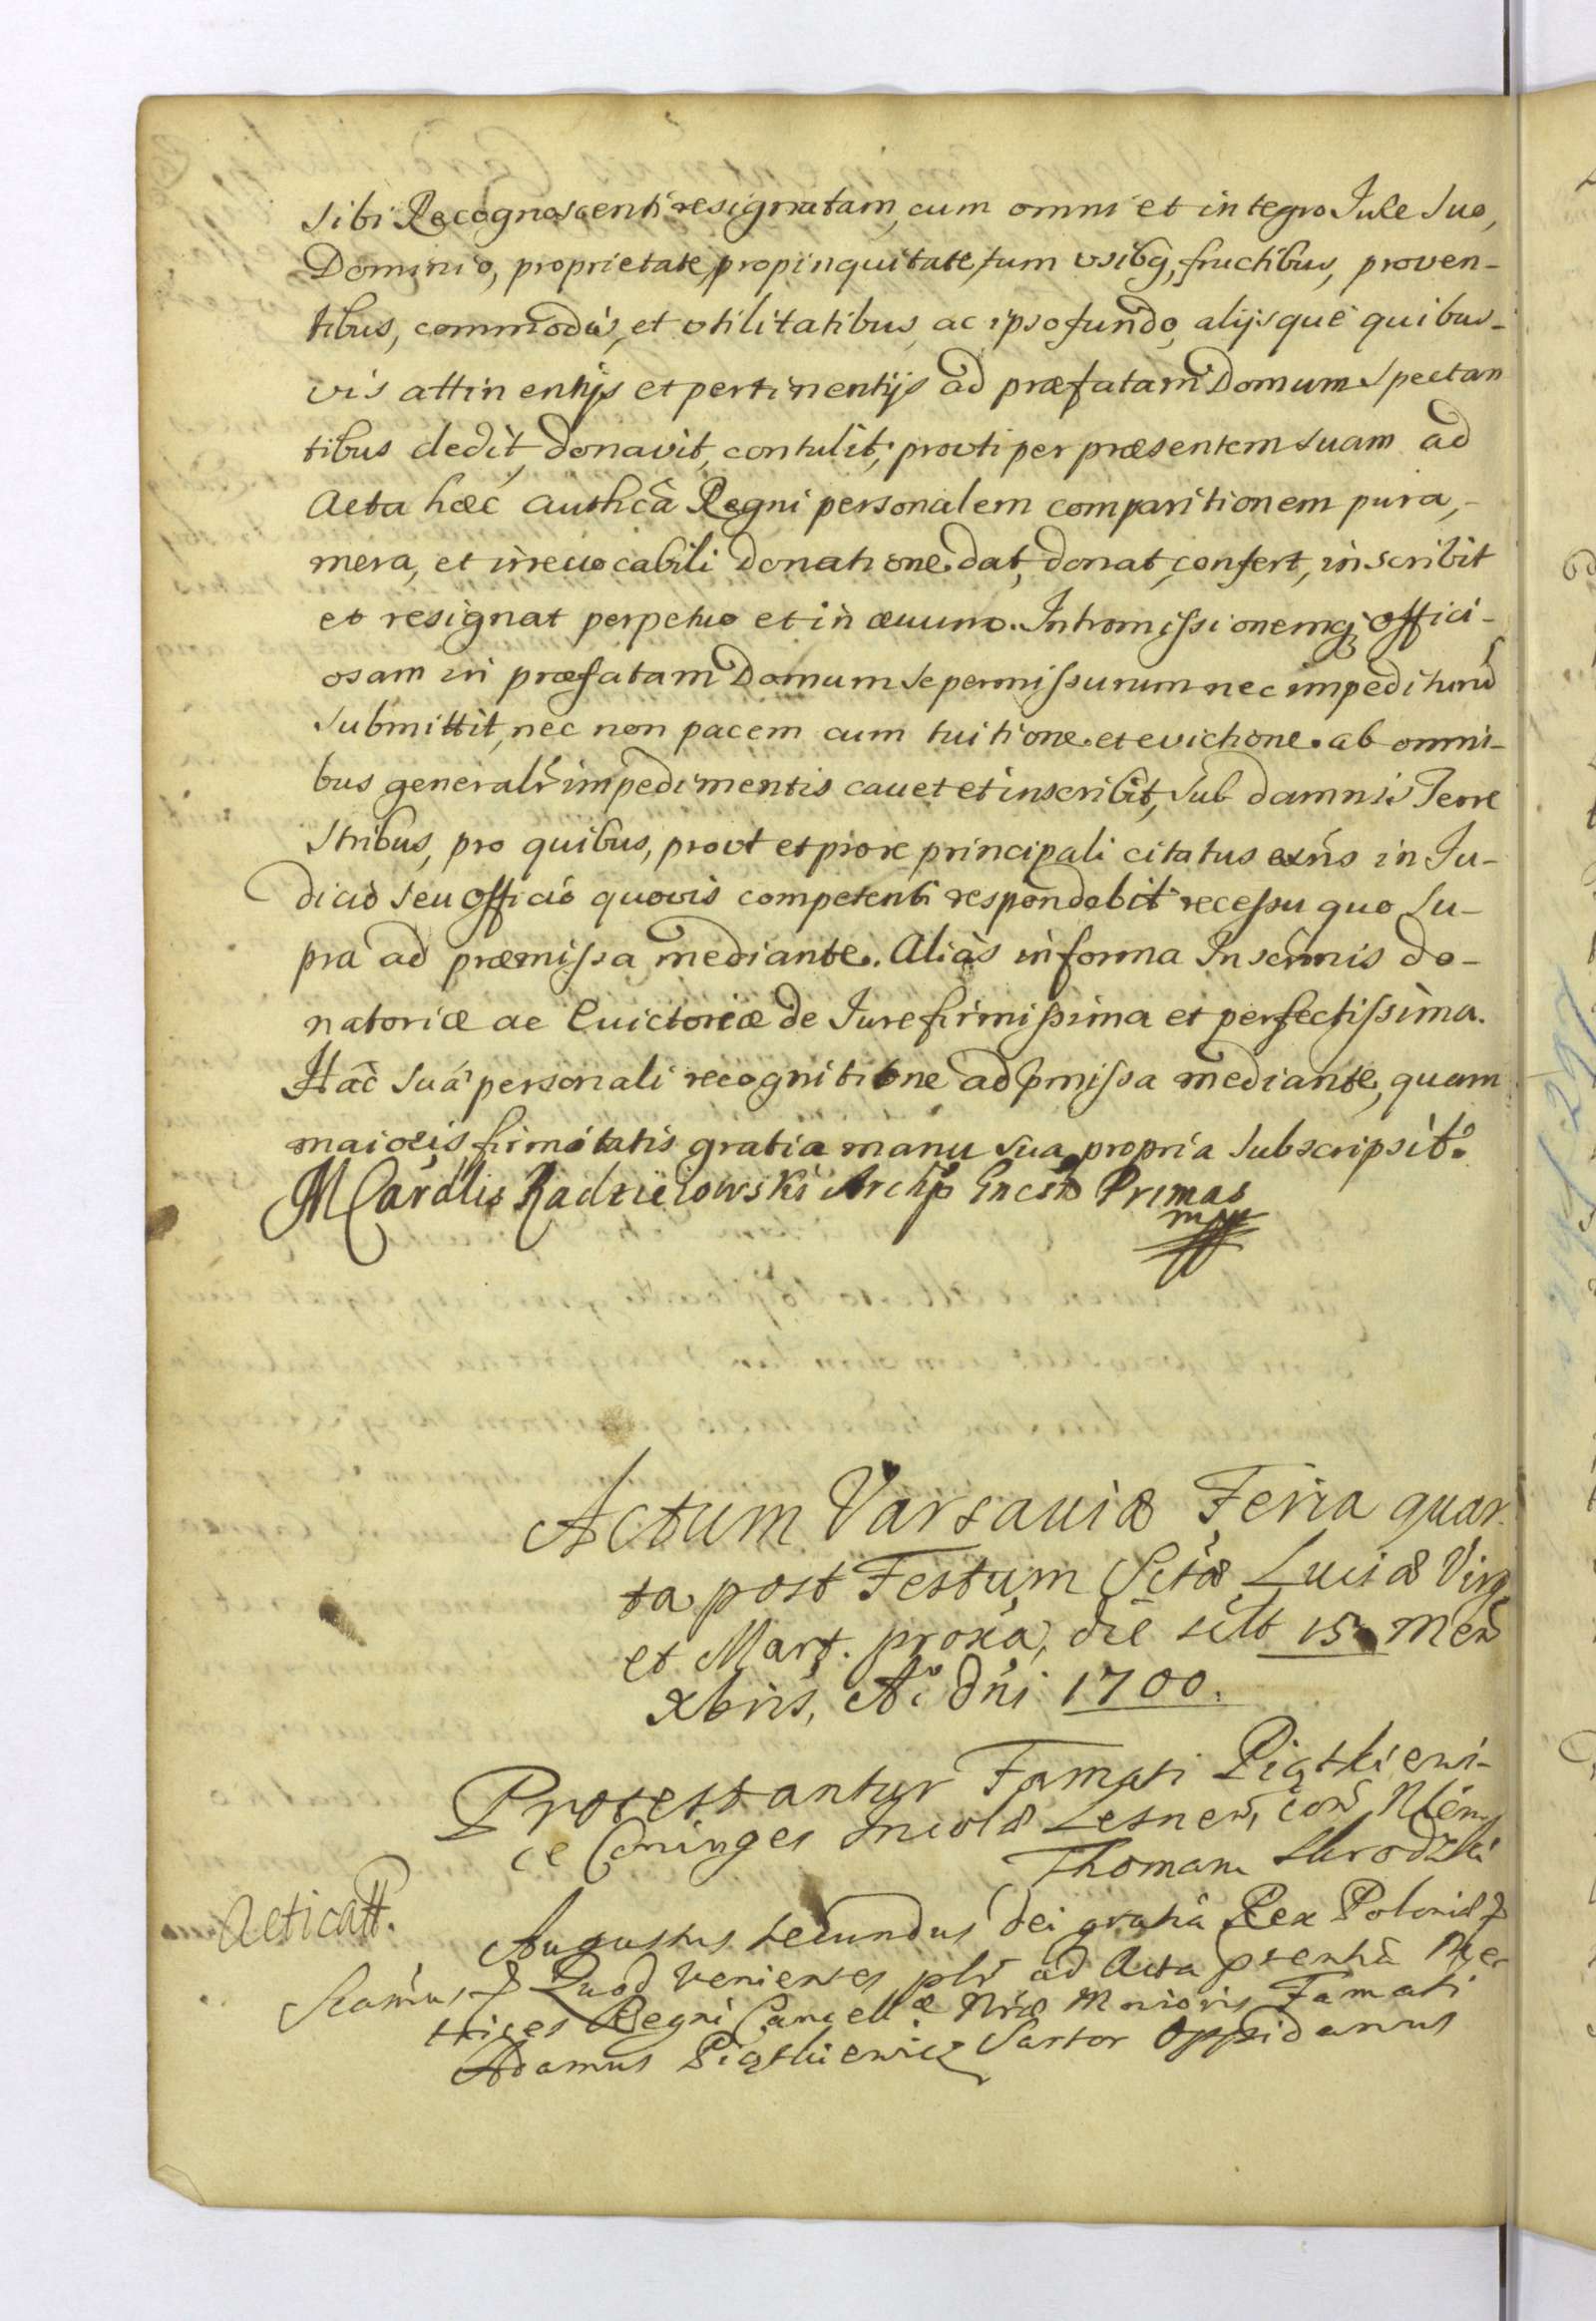 sibi Recognoscenti resignatam, cum omni et integro Jure suo,
Dominio, proprietate, propinquitate, tum usibq, fructibus, proven-
tibus, commodis, et utilitatibus, ac ipso fundo, alijsque quibus-
vis attinentijs et pertinentijs ad præfatam Domum Spectan
tibus dedit, donavit, contulit, prouti per præsentem suam ad
Acta hæc authca Regni personalem comparitionem pura,-
mera, et irrevocabili donatione dat, donat, confert, inscribit
et resignat perpetuo et in ævum. Intromissionemq offici-
osam in præfatam Domum se permissurum nec impeditund
submittit, nec non pacem cum tuitione et evictione ab omni-
bus generalr impedimentis cavet et inscribit, sub damnis Terre
stribus, pro quibus, prout et pro re principali citatus exns in Ju-
dicio seu officio quovis competenti respondebit recessu quo su-
pra ad præmissa mediante. Aliàs in forma Inscrinis do-
natoriæ ac Evictoriæ de Jure firmissima et perfectissima.
Hâc suâ personali recognitione ad pmissa mediante, quam
maioris firmitatis gratia manu sua propria subscripsit.
M Cardlis Radzieiowski Archip Gnesn Primas
mpp
Actum Varsaviæ Feria quar-
ta post Festum Sctæ Luciæ Virg
et Mart. proxa, die scilt 15 men
Xbris, Ao dni 1700.
Protestantur Famati Piątkiewi-
ce Coniuges Incolæ Lesnen, con
Thomam Skrodzki
Acticatt.
Augustus secundus dei gratia Rex Poloniæ &
Scamus & Quod venientes plr ad Acta psentia Me-
trices Regni Cancellæ Nræ Maioris Famati
Adamus Piątkiewicz Sartor Oppidanus